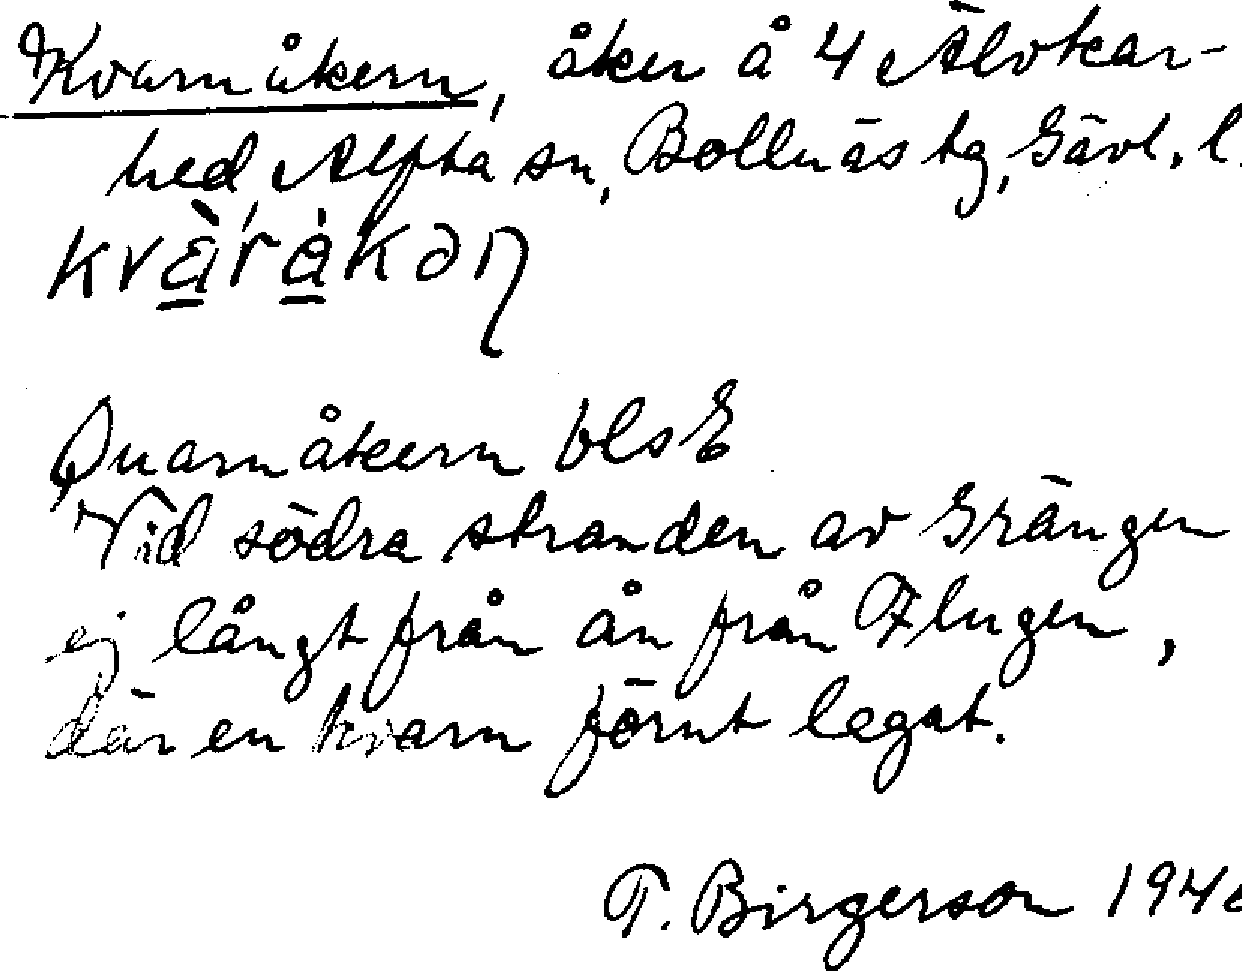 Kvarnåkern, åker å 4 Älvkar-
hed, Alfta sn, Bollnäs tg, Gävl. l.
Quarnåkern blsE
Vid södra stranden av Grängen
ej långt från ån från Flugen,
där en kvarn förut legat.
T. Birgerson